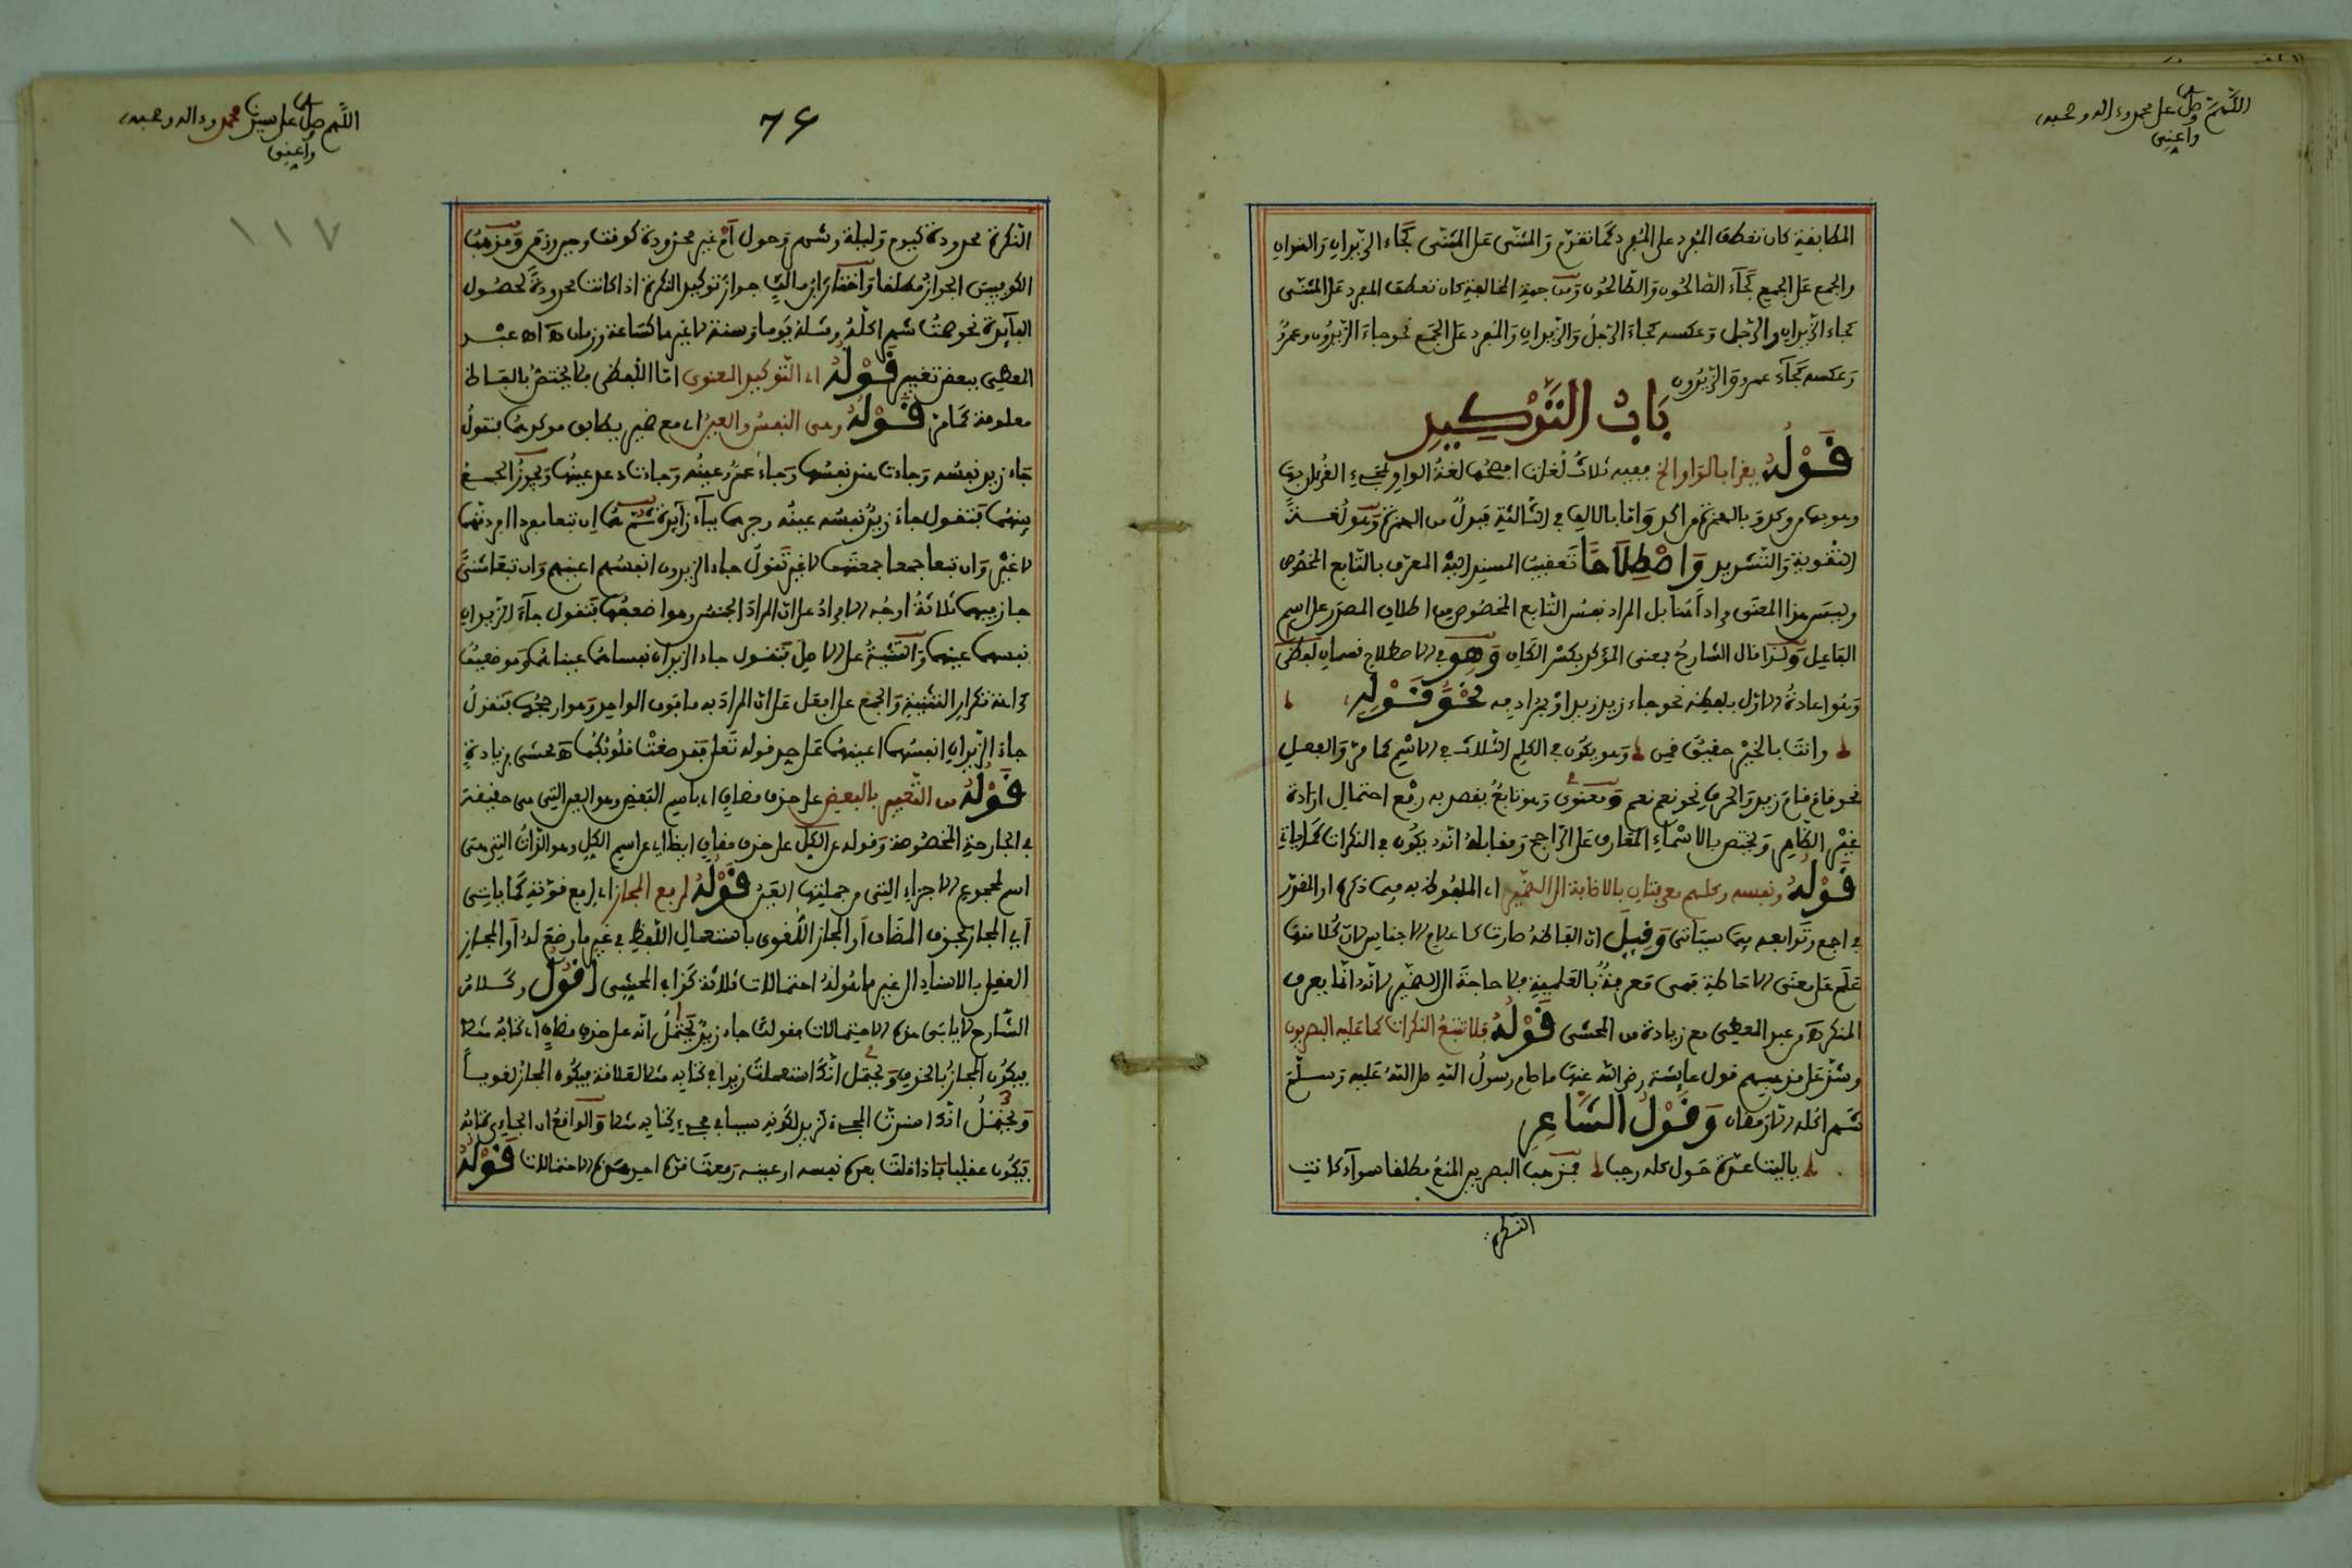 اللهم صل على محمد وءاله وصحبه
وأعني
المطابقة كان تعطف المفرد على المفرد كما تقدم والمثنى على المثنى كجاء الزيدان والعمران
والجمع على الجمع كجآء الصالحون والطالحون ومن جهة المخالفة كان تعطف المفرد على المثنى
كجاء الزيدان والرجل وعكسه كجاء الرجل والزيدان والمفرد على الجمع نحو جاء الزيدون وعمرو
وعكسه كجآء عمرو والزيدون
باب التوكيد
قوله يقرا بالواو الخ ففيه ثلاث لغات افصحها لغة الواو لمجيء القرءان بها
وهو بها من وكد وبالهمزة من اكد واما بالالف في الثالثة فبدل من الهمزة وهو لغة
التقوية والتشديد واصطلاحا تعقيب المسند اليه المعرف بالتابع المخصوص
وليس هذا المعنى مرادا هنا بل المراد نفس التابع المخصوص من اطلاق المصدر على اسم
الفاعل ولذا قال الشارح بمعنى المؤكد بكسر الكاف وهو في الاصطلاح قسمان لفظي
وهو اعادة الاول بلفظه نحو جاء زيد زيد او بمرادفه نحو قوله
وانت بالخير حقيق قمن وهو يكون في الكلم الثلاث في الاسم كما مر والفعل
نحو قام قام زيد والحرف نحو نعم نعم ومعنوي وهو تابع يقصد به رفع احتمال ارادة
غير الظاهر ويختص بالاسماء المعارف على الراجح ومقابله انه يكون في النكرات كما ياتي
قوله ونفسه وكلهم معرفتان بالاضافة الى الضمير اي الملفوظ به فيما ذكره او المقدر
في اجمع وتوابعه فيما سيأتي وقيل ان الفاظه صارت كاعلام الاجناس لان كلا منها
علم على معنى الاحاطة فهي معرفة بالعلمية فلا حاجة الى الضمير لانه انما يعرف
المنكر اهـ من عبد المعطي مع زيادة من المحشي قوله فلا تتبع النكرات كما عليه البصريون
وشذ على مذهبهم قول عايشة رضي الله عنها ما صام رسول الله صلى الله عليه وسلم
شهرا كله الا رمضان وقول الشاعر
يا ليت عدة حول كله رجب فمذهب البصريين المنع مطلقا سوآء كانت
النكرة
اللهم صل على سيدنا محمد وءاله وصحبه
وأعني
76
١١٧
النكرة محدودة كيوم وليلة وشهر وحول أم غير محدودة كوقت وحين وزمن ومذهب
الكوفيين الجواز مطلقا واختار ابن مالك جواز توكيد النكرة اذا كانت محدودة لحصول
الفآيدة نحو صمت شهرا كله وشله يوما وسنة لا غيرها كساعة وزمان اهـ عبد
المعطي ببعض تغيير قوله اي التوكيد المعنوي اما اللفظي فلا يختص بالفاظ
معلومة كما مر قوله وهي النفس والعين اي مع ضمير يطابق موكدهما فتقول
جاء زيد نفسه وجاءت هند نفسها وجاء عمرو عينه وجاءت دعد عينها ويجوز الجمع
بينهما فتقول جاء زيد نفسه عينه وجرهما ببآء زآيدة ثم هما ان تبعا مفردا افردتهما
لا غير وان تبعا جمعا جمعتهما لا غير تقول جاء الزيدون انفسهم اعينهم وان تبعا مثنى
جاز فيهما ثلاثة اوجه الافراد على ان المراد الجنس وهو اضعفها فتقول جآء الزيدان
نفسهما عينهما والتثنية على الاصل فتقول جاء الزيدان نفساهما عيناهما وهو ضعيف
كراهة تكرار التثنية والجمع على افعل على ان المراد به ما فوق الواحد وهو ارجحها فتقول
جاء الزيدان انفسهما اعينهما على حد قوله تعلى فقد صغت قلوبكما اهـ محشي بزيادة
قوله من التعبير بالبعض على حذف مضاف اي باسم البعض وهو العين التي هي حقيقة
في الجارحة المخصوصة وقوله عن الكل على حذف مضاف ايضا اي عن اسم الكل وهو الذات التي هي
اسم لمجموع الاجزاء التي من جملتها العين قوله لرفع المجاز اي لرفع قوته كما ياتي
اي المجاز بحذف المضاف أو المجاز اللغوي باستعمال اللفظ في غير ما وضع له أو المجاز
العقلي بالاسناد الى غير ما هو له احتمالات ثلاثة كذا في المحشي اقول وكلام
الشارح لا يابى هذه الاحتمالات فقولك جاء زيد يحتمل انه على حذف مضاف اي كتابه مثلا
فيكون المجاز بالحذف ويحتمل انك استعملت زيدا في كتابه مثلا لعلاقة فيكون المجاز لغويا
ويحتمل انك اسندت المجيء لزيد لكونه سببا في مجيء كتابه مثلا والواقع ان الجاءي كتابه
فيكون عقليا فاذا قلت بعده نفسه او عينه رفعت قوة احد هذه الاحتمالات قوله